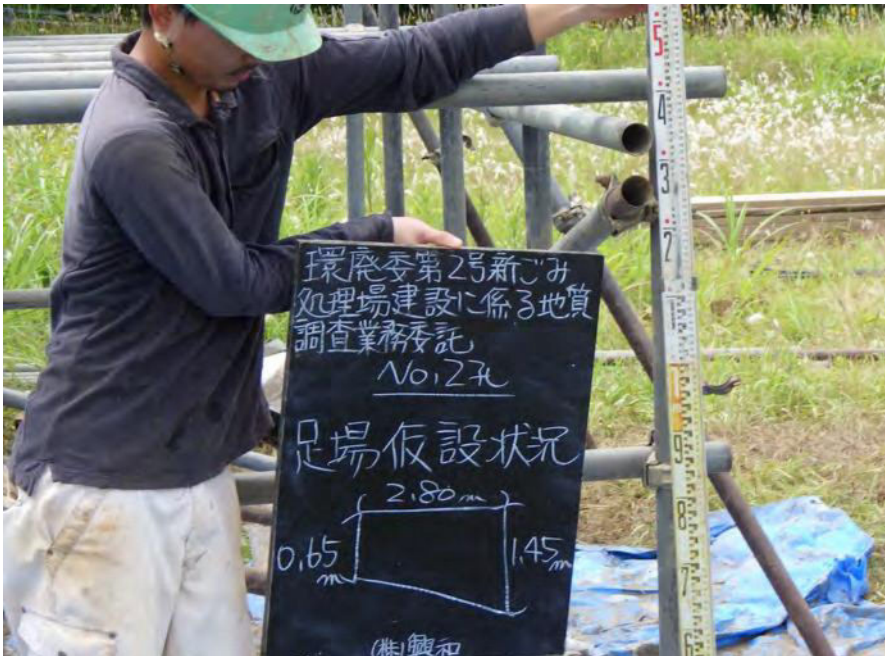 環廃委第2号新ごみ
処理場建設に係る地質
調査業務委託
No.2孔
足場仮設状況
2.80m
0.65m
1.45m
(株)興和
5
4
3
2
1
9
8
7
6